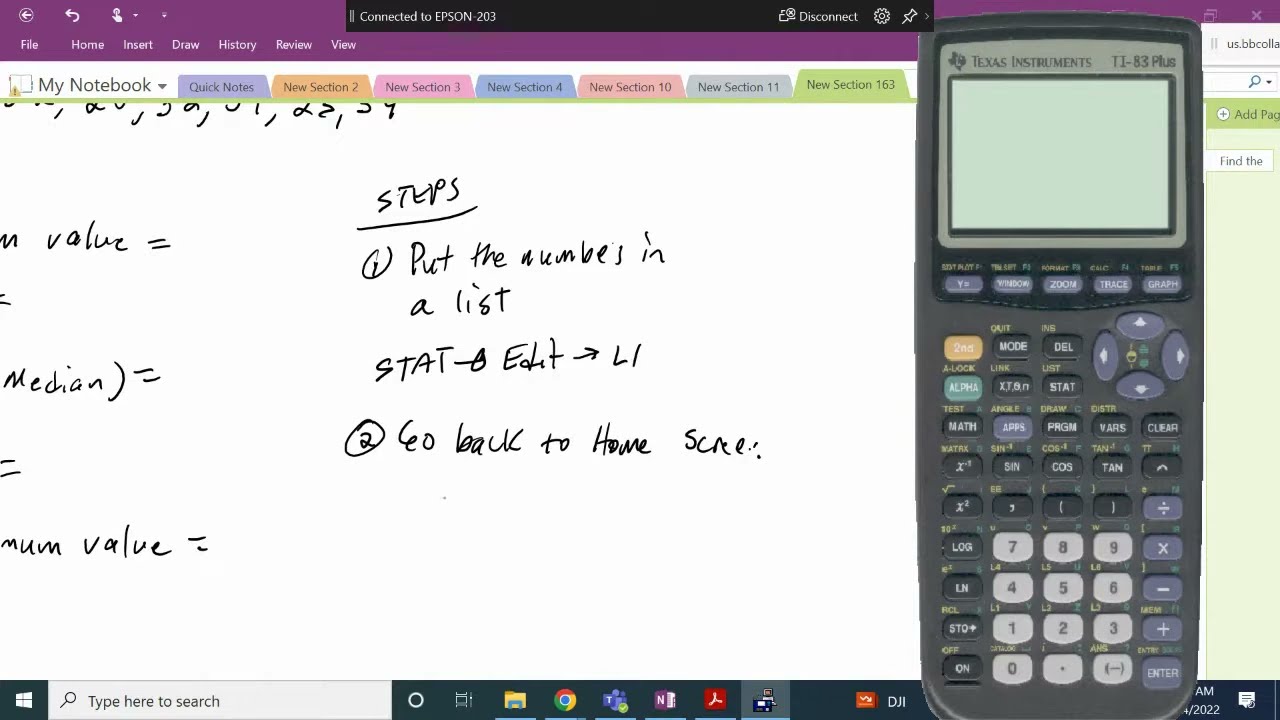 Connected to EPSON-203
Disconnect
File Home Insert Draw History Review View
us.bbcolla
My Notebook
Quick Notes
New Section 2
New Section 3
New Section 4
New Section 10
New Section 11
New Section 163
Add Pag
Find the
STEPS
① Put the numbers in
a list
STAT → Edit → L1
② Go back to Home Scree
m value =
=
Median) =
=
mum value =
TEXAS INSTRUMENTS TI-83 Plus
STAT PLOT F1 TBLSET F2 FORMAT F3 CALC F4 TABLE F5
Y= WINDOW ZOOM TRACE GRAPH
QUIT INS
2nd MODE DEL
A-LOCK LINK LIST
ALPHA X,T,Θ,n STAT
TEST A ANGLE B DRAW C DISTR
MATH APPS PRGM VARS CLEAR
MATRX D SIN⁻¹ E COS⁻¹ F TAN⁻¹ G π H
x⁻¹ SIN COS TAN ^
√ I EE J { K } L e M
x² , ( ) ÷
10ˣ N u O v P w Q [ R
LOG 7 8 9 ×
eˣ S L4 T L5 U L6 V ] W
LN 4 5 6 −
RCL X L1 Y L2 Z L3 θ MEM "
STO→ 1 2 3 +
OFF CATALOG : ANS ? ENTRY SOLVE
ON 0 . (−) ENTER
Type here to search
DJI
AM
4/2022